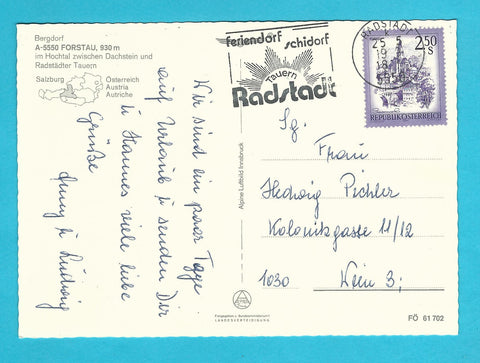 Bergdorf
A-5550 FORSTAU, 930 m
im Hochtal zwischen Dachstein und
Radstädter Tauern
Salzburg
Österreich
Austria
Autriche
Wir sind ein paar Tage
auf Urlaub u senden Dir
u Hannes viele liebe
Grüße
u Ludwig
Alpine Luftbild Innsbruck
feriendorf schidorf
Tauern
Radstadt
RADSTADT
25. 5
18
5550
2.50 S
REPUBLIK ÖSTERREICH
Sg.
Frau
Hedwig Pichler
Kolonitzgasse 11/12
1030 Wien 3;
Freigegeben v. Bundesministerium f.
LANDESVERTEIDIGUNG
FÖ 61 702